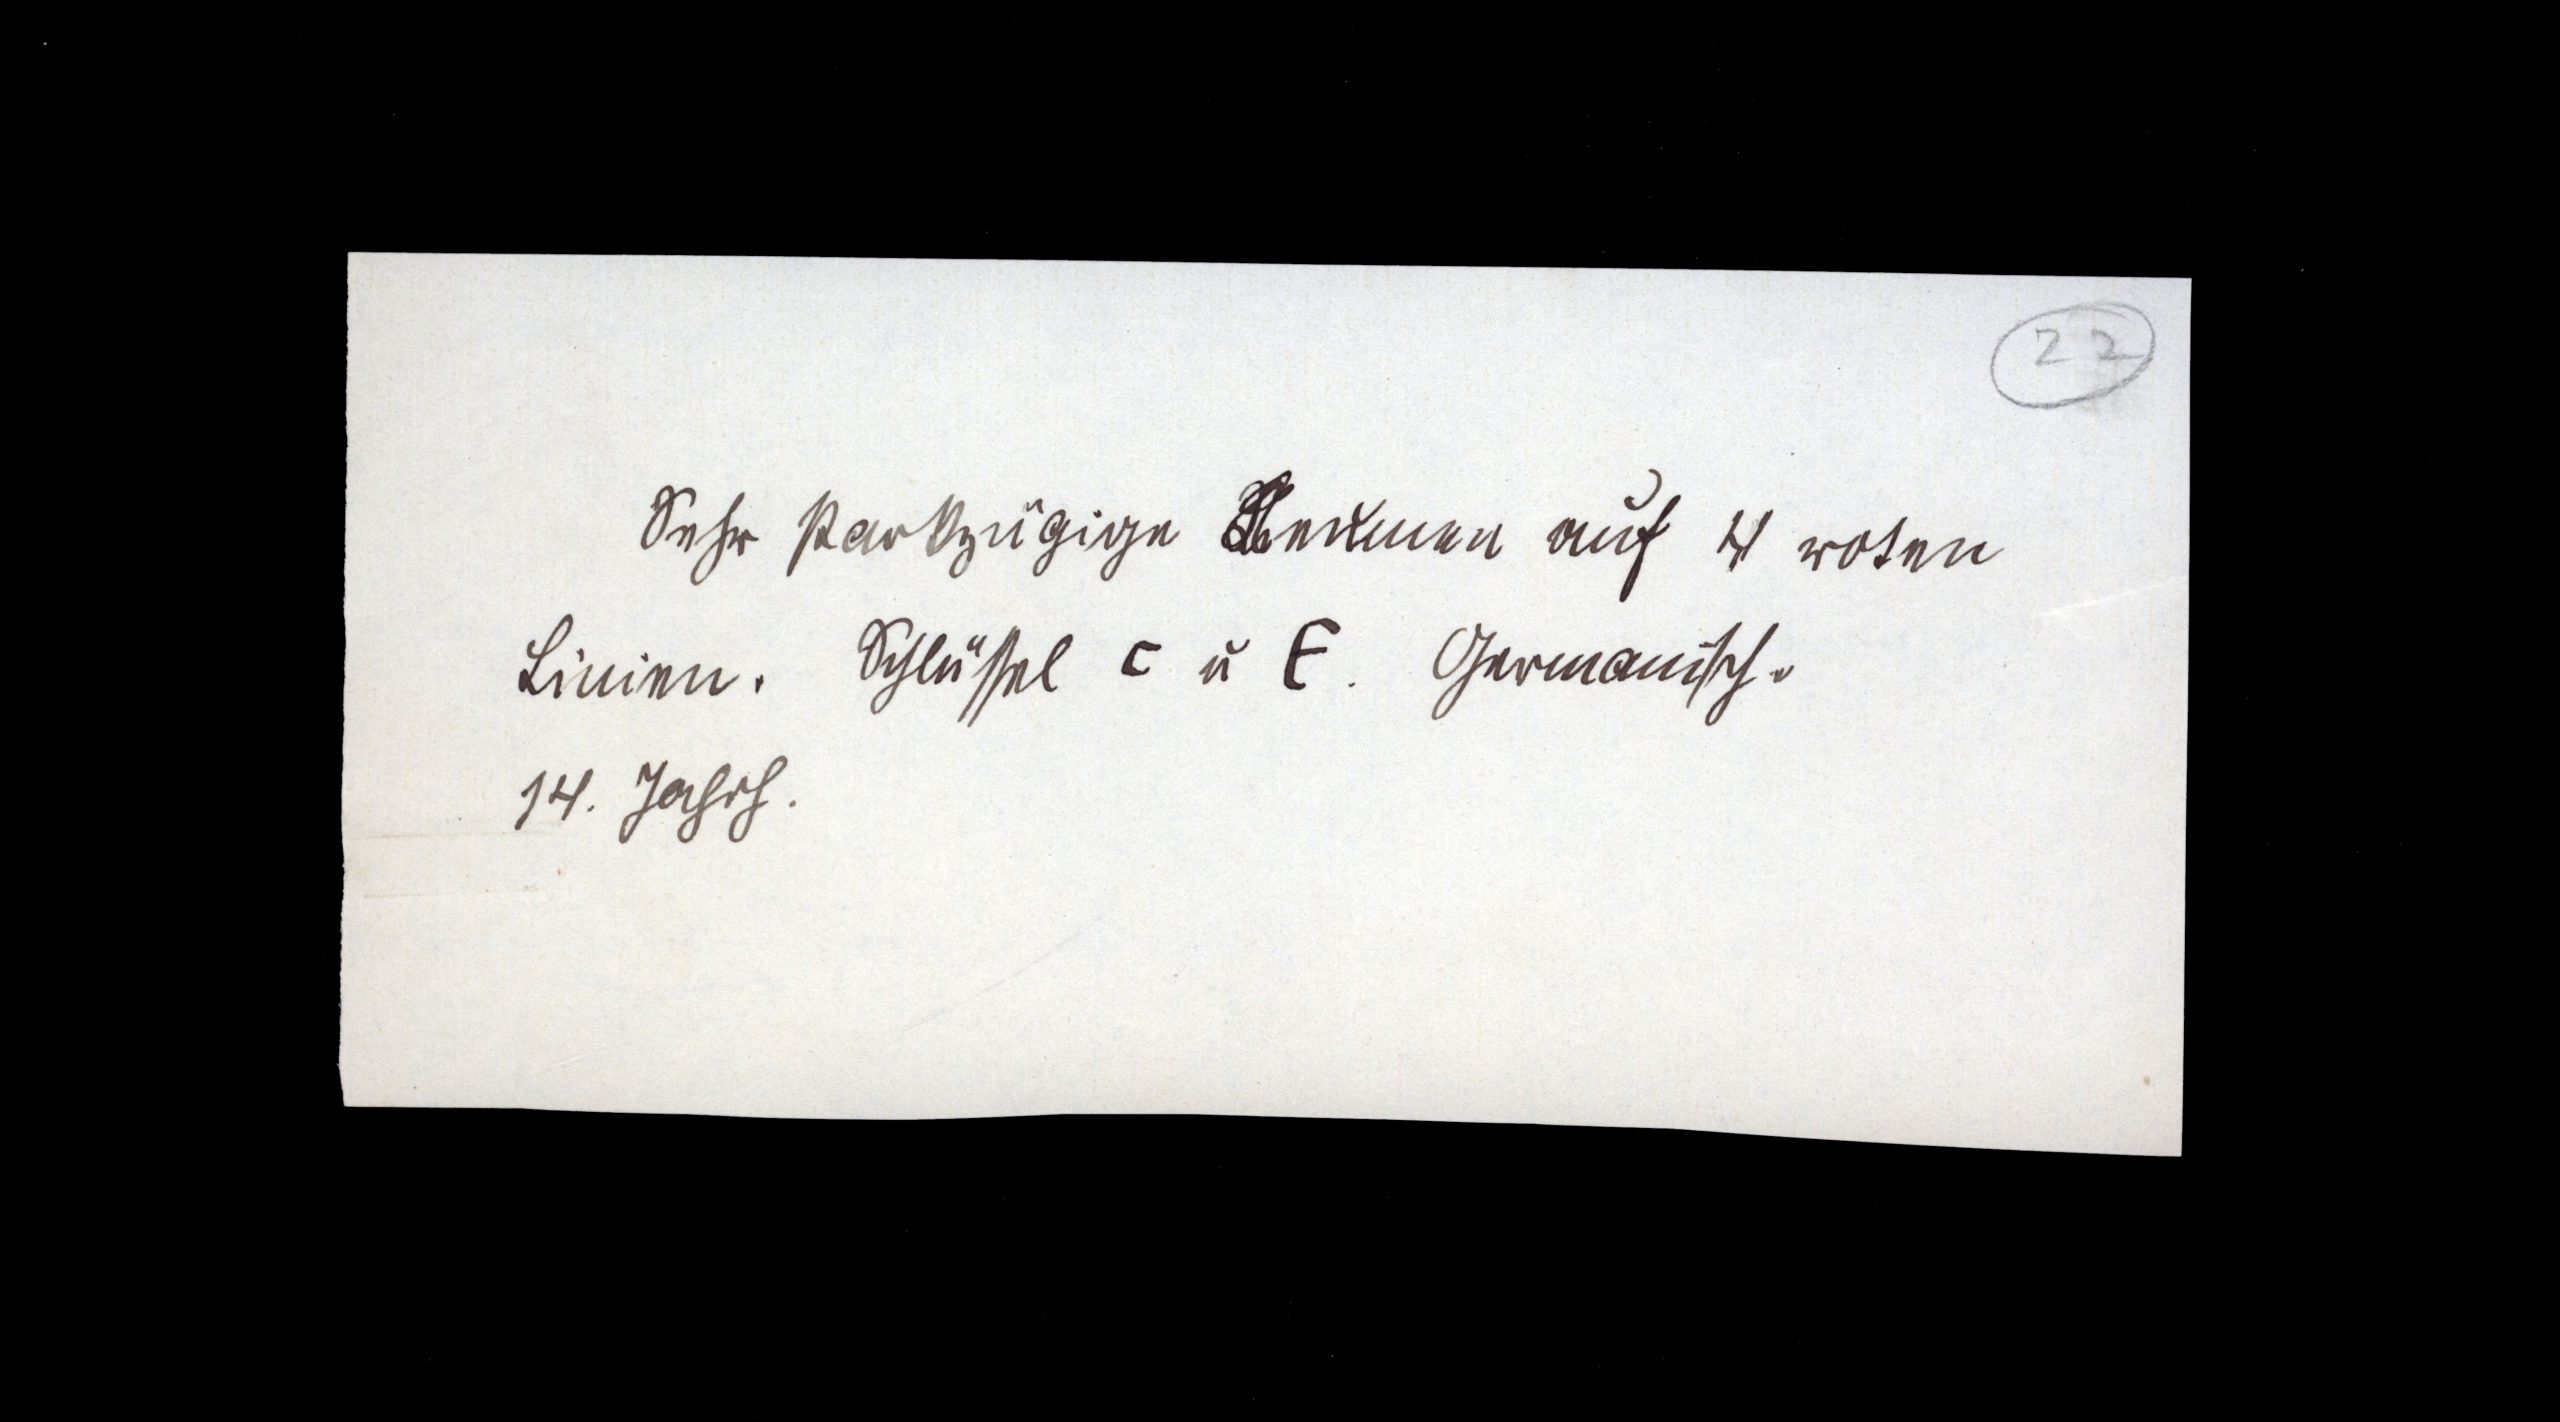 22
Sehr starkzügige Neumen auf 4 roten
Linien. Schlüssel c u F. Germanisch.
14. Jahrh.